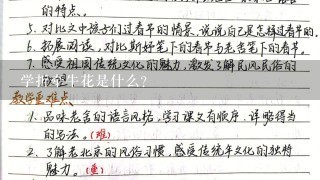 的特点。
5. 对比文中孩子们过春节的情景,说说自己是怎样过春节的。
6. 拓展阅读,对比斯妤笔下的春节与老舍笔下的春节。
7. 感受祖国传统文化的魅力,激发了解民风民俗的
欲望
学 牛花是什么?
教学重难点、
1. 品味老舍的语言风格,学习课文有顺序,详略得当
的写法。(难)
2. 了解老北京的风俗习惯,感受传统年文化的独特
魅力。(重)